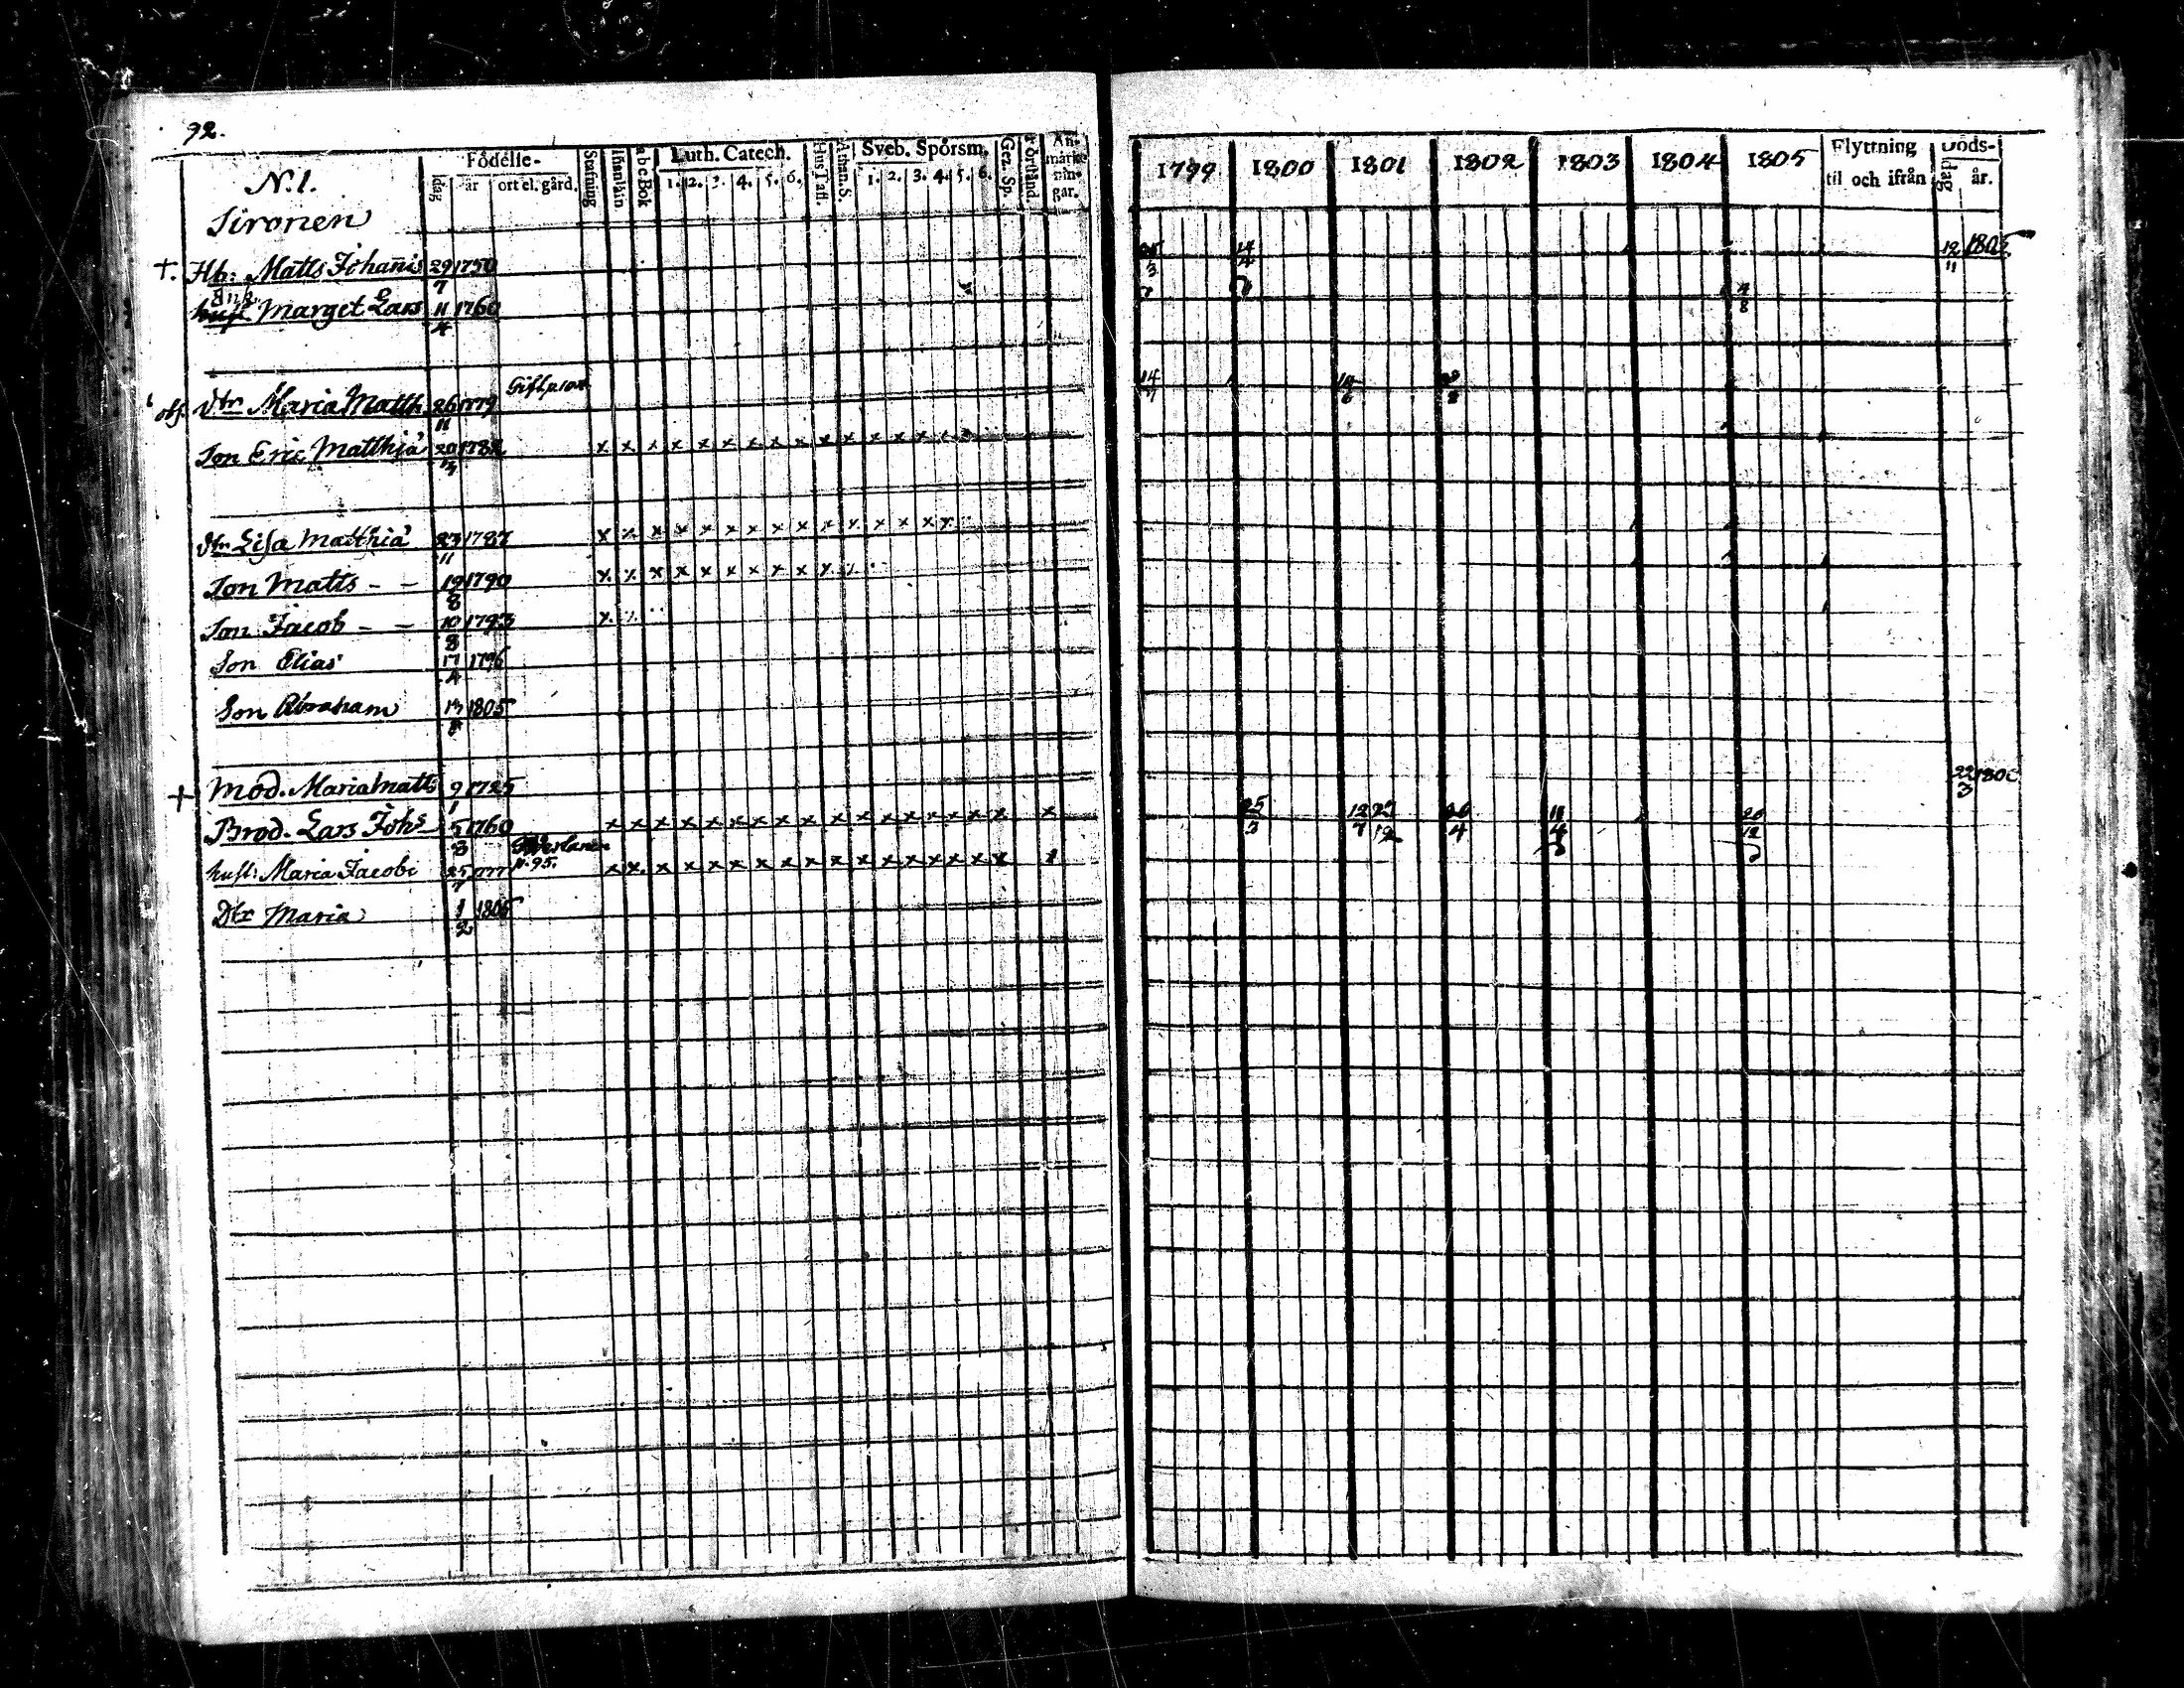 92.
N.1.
Sironen
Födelse-
dag år ort el. gård.
Stafning
Innanläsn.
a b c Bok
Luth. Catech.
1. 2. 3. 4. 5. 6.
Hus Tafl.
Athan. S.
Sveb. Spörsm.
1. 2. 3. 4. 5. 6.
Gez. Sp.
Förstånd.
An-
märk-
nin-
gar.
1799 1800 1801 1802 1803 1804 1805
Flyttning
til och ifrån
Döds-
dag år.
†. Hb: Matts Johanis 29/7 1750 14/4 12/11 1805
Enk.
hust Marget Lars 11/4 1760
obs. dtr Maria Matth 26/11 1779 14/7
Son Eric Matthiæ 20 178 x x x x x x x x x x x x x x
dtr Lisa Matthiæ 23/11 1787 x x x x x x x x x x x x x x x
Son Matts - - 19/8 1790 x x x x x x x x x x x
Son Jacob - - 10/8 1793 x x
Son Elias 17/4 1796
Son Abraham 13 1805
† Mod. Maria Matts 9/1 1725 22/3 180
Brod. Lars Johs 5/3 1760 x x x x x x x x x x x x x x x x x x 25/3 12/7 27/12 26/4 11/4 20/12
hust: Maria Jacobi 25/7 1777 N. 95. x x x x x x x x x x x x x x x x x
Dtr Maria 1/2 1805